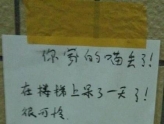 你家的喵丢了!
在楼梯上呆了一天了!
很可怜